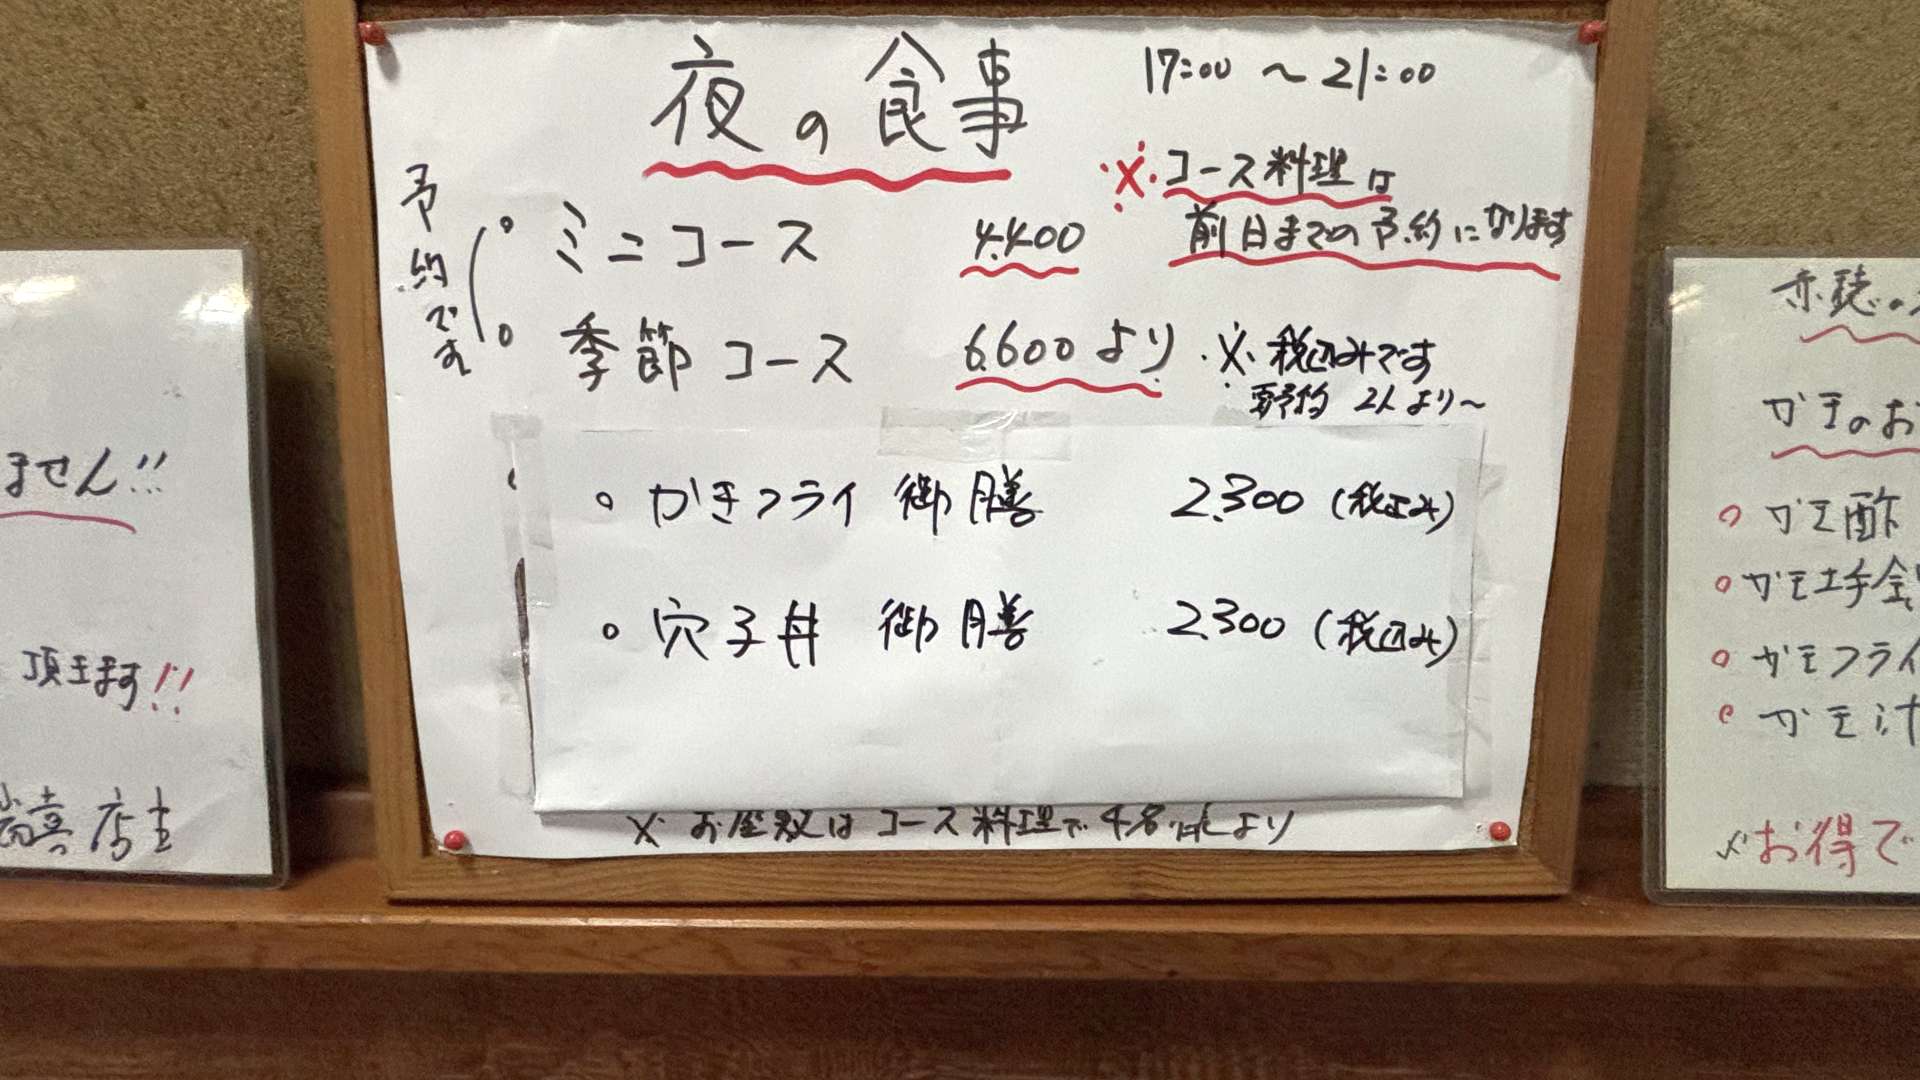 夜の食事
17:00 ～ 21:00
※コース料理は
前日までの予約になります
予約です
○ ミニコース 4.400
○ 季節コース 6.600より
※税込みです
要予約 2人より～
○ かきフライ 御膳 2.300 (税込み)
○ 穴子丼 御膳 2.300 (税込み)
※ お座敷はコース料理で4名様より
ません!!
頂きます!!
店主
かきのお
○ かき酢
○ かき土手
○ かきフライ
○ かき汁
※お得で